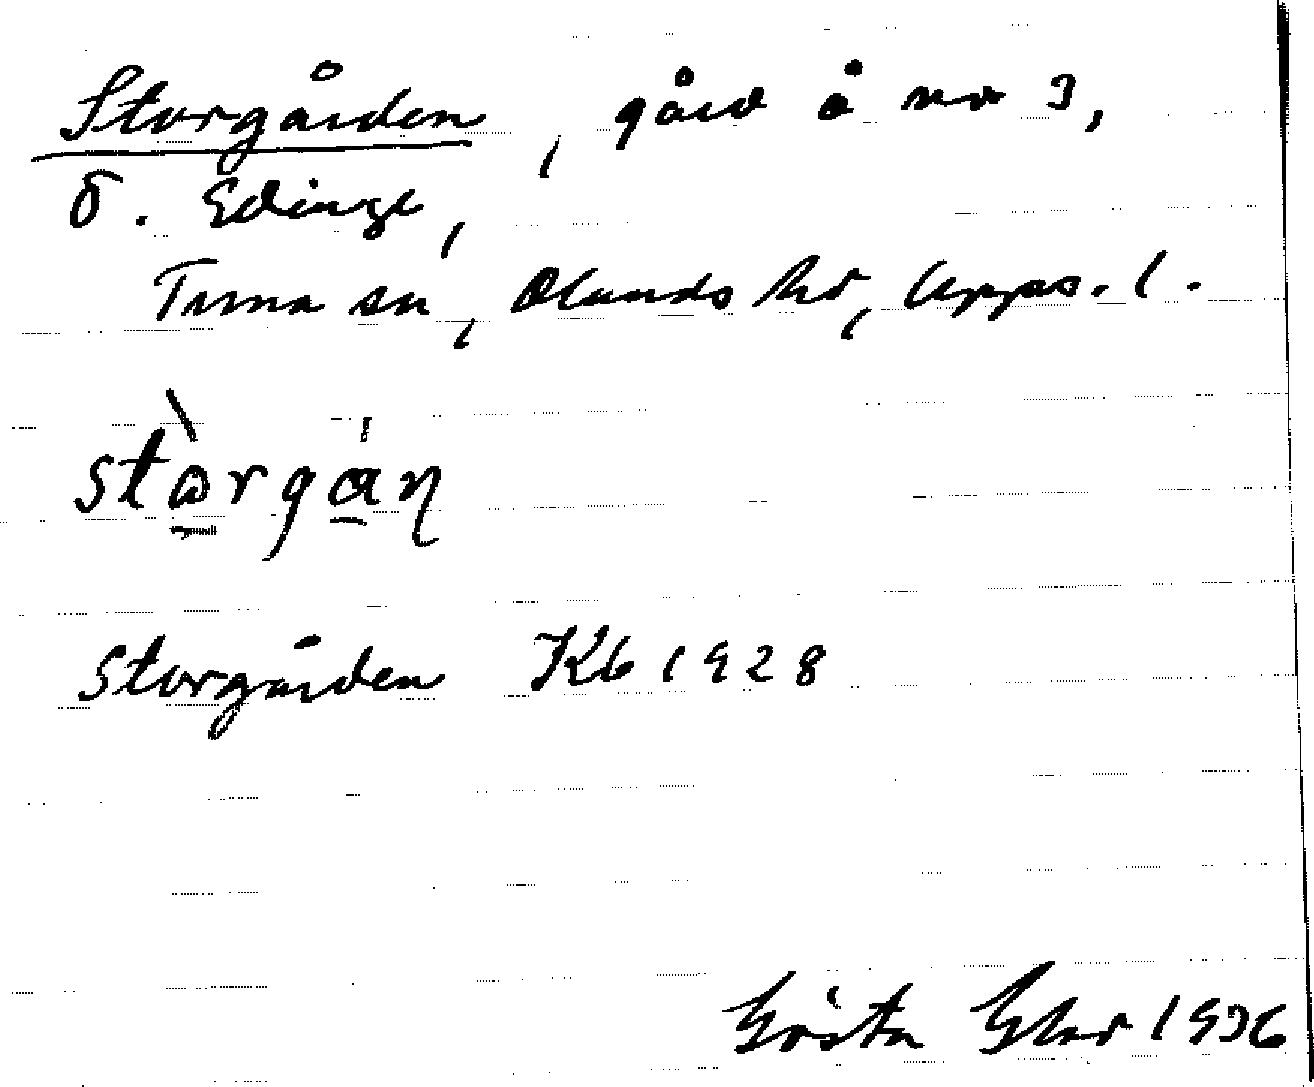 Storgården, gård å nr 3,
Ö. Edinge,
Tuna sn, Olands hd, Upps. l.
stàrgán
Storgården Kb 1928
Gösta 1936